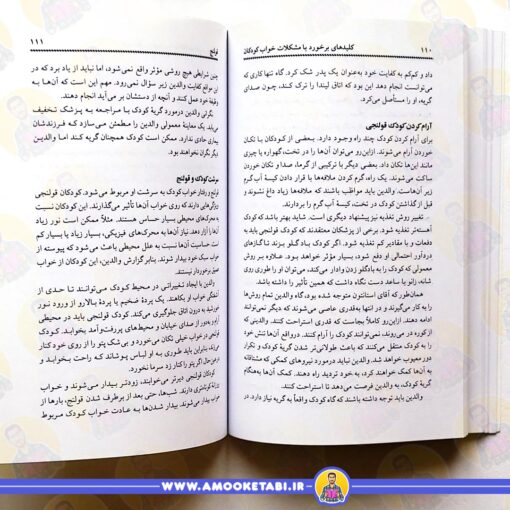 ۱۱۰ کلیدهای برخورد با مشکلات خواب کودکان
داد و کم‌کم به کفایت خود به‌عنوان یک پدر شک کرد. گاه تنها کاری که
می‌توانست انجام دهد این بود که اتاق لیندا را ترک کند، چون صدای
گریه، او را مستأصل می‌کرد.
آرام کردن کودک قولنجی
برای آرام کردن کودک چند راه وجود دارد. بعضی از کودکان با تکان
خوردن آرام می‌شوند. ازاین‌رو می‌توان آن‌ها را در تخت، گهواره یا چیزی
مانند این‌ها تکان داد. بعضی دیگر با ترکیبی از گرما، صدا و تکان خوردن
ساکت می‌شوند. یک راه، گرم کردن ملافه‌ها با قرار دادن کیسهٔ آب گرم
زیر آن‌هاست. والدین باید مواظب باشند که ملافه‌ها زیاد داغ نشوند و
قبل از گذاشتن کودک در تخت، کیسهٔ آب گرم را بردارند.
تغییر روش تغذیه نیز پیشنهاد دیگری است. شاید بهتر باشد که کودک
آهسته‌تر تغذیه شود. برخی از پزشکان معتقدند که کودک قولنجی باید به
دفعات و با مقادیر کم تغذیه شود. اگر کودک بغل گرفته شود تا گازهای
دردآور احتمالی او دفع شود، بسیار مؤثر خواهد بود. علاوه‌بر روش
معمولی که کودک را به بادگلو زدن وادار می‌کند، می‌توان او را طوری روی
شانه، زانو یا ساعد دست نگاه داشت که همین تأثیر را داشته باشد.
همان‌طور که آقای استانتون متوجه شد، گاه والدین تمام روش‌ها
را به کار می‌گیرند و در انتها به‌قدری عاصی می‌شوند که دیگر نمی‌توانند
ادامه دهند. ازاین‌رو کاملاً بجاست که قدری استراحت کنند. والدینی که
از کوره در می‌روند، نمی‌توانند کودک را آرام کنند. آن‌ها فشار عصبی خود
را به کودک منتقل می‌کنند که باعث طولانی‌تر شدن گریهٔ کودک و تکرار
دور معیوب خواهد شد. والدین نباید درمورد نیروهای کمکی که مشتاقانه
به آن‌ها کمک خواهند کرد، به خود تردید راه دهند. کمک آن‌ها به‌هنگام
گریهٔ کودک، به والدین فرصت می‌دهد تا استراحت کنند.
والدین باید توجه داشته باشند که گاه کودک واقعاً به گریه نیاز دارد. در
قولنج ۱۱۱
چنین شرایطی هیچ روشی مؤثر واقع نمی‌شود، اما نباید از یاد برد که در
این مواقع کفایت والدین زیر سؤال نمی‌رود. مهم این است که آن‌ها به
وظیفهٔ خود عمل کنند و آنچه از دستشان بر می‌آید انجام دهند.
نگرانی والدین درمورد گریهٔ کودک با مراجعه به پزشک تخفیف
می‌یابد. یک معاینهٔ معمولی والدین را مطمئن می‌سازد که فرزندشان
بیماری حادی ندارد. ممکن است کودک همچنان گریه کند اما والدین
دیگر نگران نخواهند بود.
سرشت کودک و قولنج
قولنج و رفتار خواب کودک به سرشت او مربوط می‌شود. کودکان قولنجی
ویژگی‌هایی دارند که روی خواب آن‌ها تأثیر می‌گذارد. این کودکان نسبت
به محرک‌های محیطی بسیار حساس هستند. مثلاً ممکن است نور زیاد
آن‌ها را آزار دهد. نیاز آن‌ها به محرک‌های فیزیکی، بسیار زیاد یا بسیار کم
است. حساسیت آن‌ها نسبت به علل محیطی باعث می‌شود که پیوسته از
خواب سبک خود بیدار شوند. بنابر گزارش والدین، این کودکان از خواب
عمیق برخوردار نیستند.
والدین با ایجاد تغییراتی در محیط کودک می‌توانند تا حدی از
آشفتگی خواب او بکاهند. یک پردهٔ ضخیم یا پردهٔ بالارو از ورود نور
خورشید به درون اتاق جلوگیری می‌کند. کودک قولنجی باید در محیطی
آرام و به‌دور از صدای خیابان و محیط‌های پررفت‌وآمد بخوابد. کودک
قولنجی در خواب خیلی تکان می‌خورد و بی‌شک پتو را از روی خود کنار
می‌زند. بنابراین باید طوری به او لباس پوشاند که راحت بخوابد و
درصورتی‌که پتو را کنار زد سرما نخورد.
کودکان قولنجی دیرتر می‌خوابند، زودتر بیدار می‌شوند و خواب
روزانهٔ کوتاه‌تری دارند. شب‌ها، حتی بعد از برطرف شدن قولنج، بارها از
خواب بیدار می‌شوند. بیدار شدن‌ها به عادت خواب کودک مربوط
WWW.AMOOKETABI.IR